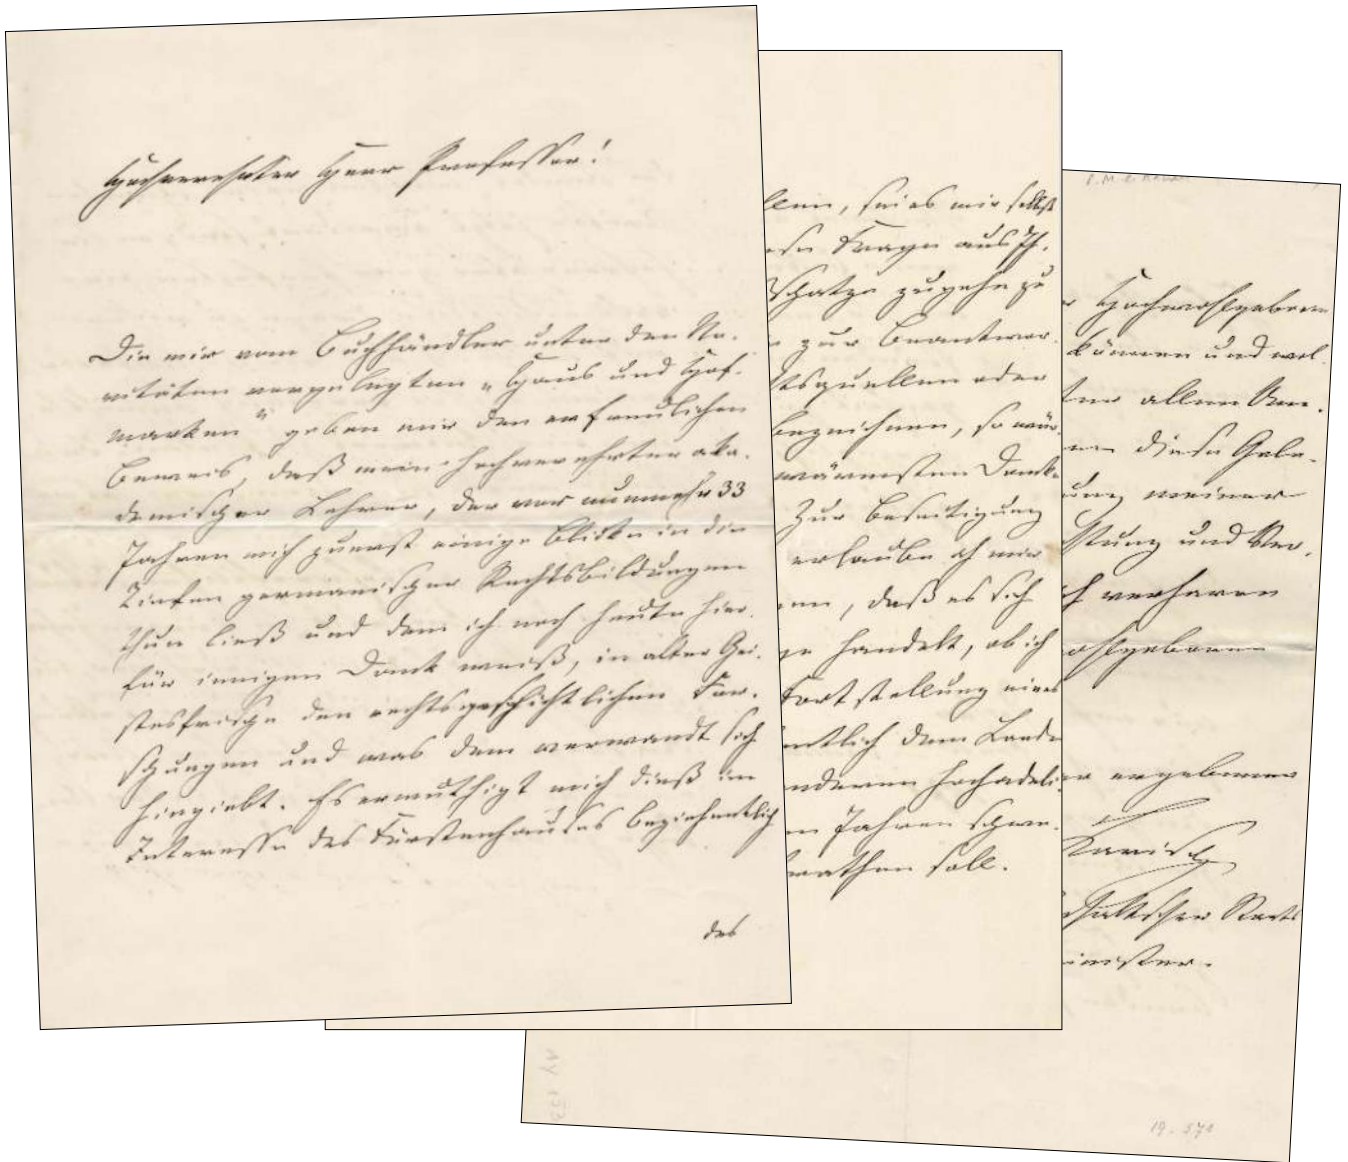 Hochverehrter Herr Professor!
Die mir vom Buchhändler unter den No-
vitäten vorgelegten „Haus und Hof-
marken" geben mir den erfreulichen
Beweis, daß mein hochverehrter aka-
demischer Lehrer, der vor nunmehr 33
Jahren mich zuerst einige Blicke in die
Tiefen germanischer Rechtsbildungen
thun ließ und dem ich noch heute hier-
für innigen Dank weiß, in alter Gei-
stesfrische den rechtsgeschichtlichen For-
schungen und was dem verwandt sich
hingiebt. Es ermuthigt mich dieß im
Interesse des Fürstenhauses beziehentlich
des
llen, sei es mir selbst
ese Fragen aus Ih-
schatze zugehn zu
zur Beantwor-
tsquellen oder
bezeichnen, so wür-
wärmsten Danke
Zur Beseitigung
erlaube ich mir
en, daß es sich
ge handelt, ob ich
Fortstellung eines
ntlich dem Lande
nderen hochadeli-
en Jahren schwe-
rathen soll.
r Hochwohlgeboren
können und wol-
ter allen Um-
en diese Gele-
ung meiner
tung und Ver-
ch verharren
ohlgeboren
er ergebener
Harisch
dhaltscher Staats
inister.
19. 571